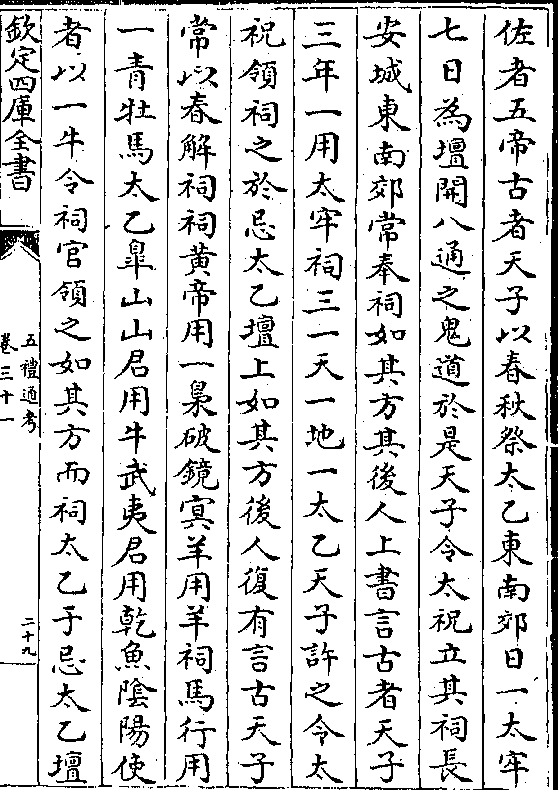 佐者五帝古者天子以春秋祭太乙東南郊日一太牢
七日為壇開八通之鬼道於是天子令太祝立其祠長
安城東南郊常奉祠如其方其後人上書言古者天子
三年一用太牢祠三一天一地一太乙天子許之令太
祝領祠之於忌太乙壇上如其方後人復有言古天子
常以春解祠祠黄帝用一梟破鏡㝠羊用羊祠馬行用
一青牡馬太乙臯山山君用牛武夷君用乾魚陰陽使
者以一牛令祠官領之如其方而祠太乙于忌太乙壇
欽定四庫全書
五禮通考
卷三十一
二十九